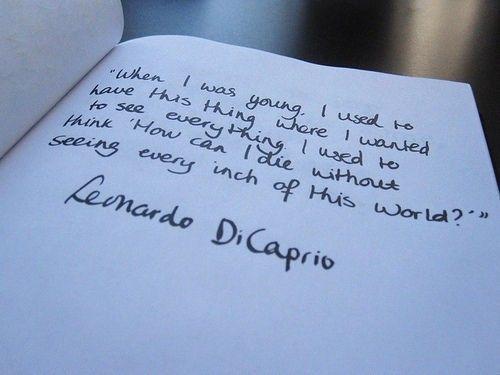 "When I was young, I used to
have this thing where I wanted
to see everything. I used to
think 'How can I die without
seeing every inch of this world?'"
Leonardo DiCaprio